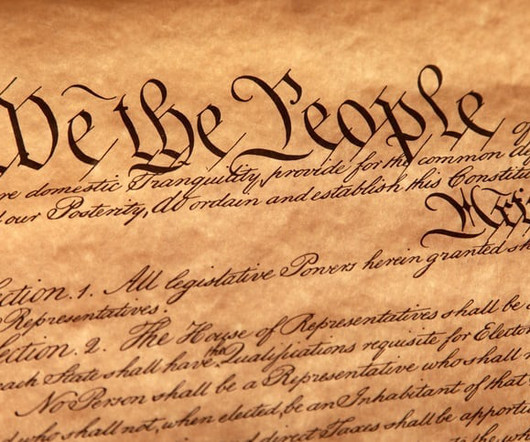 We the People
re domestic Tranquility, provide for the common
our Posterity, do ordain and establish this Constitu
ction. 1. All legislative Powers herein granted sh
Representatives.
ection. 2. The House of Representatives shall be
each State shall have the Qualifications requisite for Elect
No Person shall be a Representative who shall
who shall not, when elected, be an Inhabitant of that
direct Taxes shall be apporti